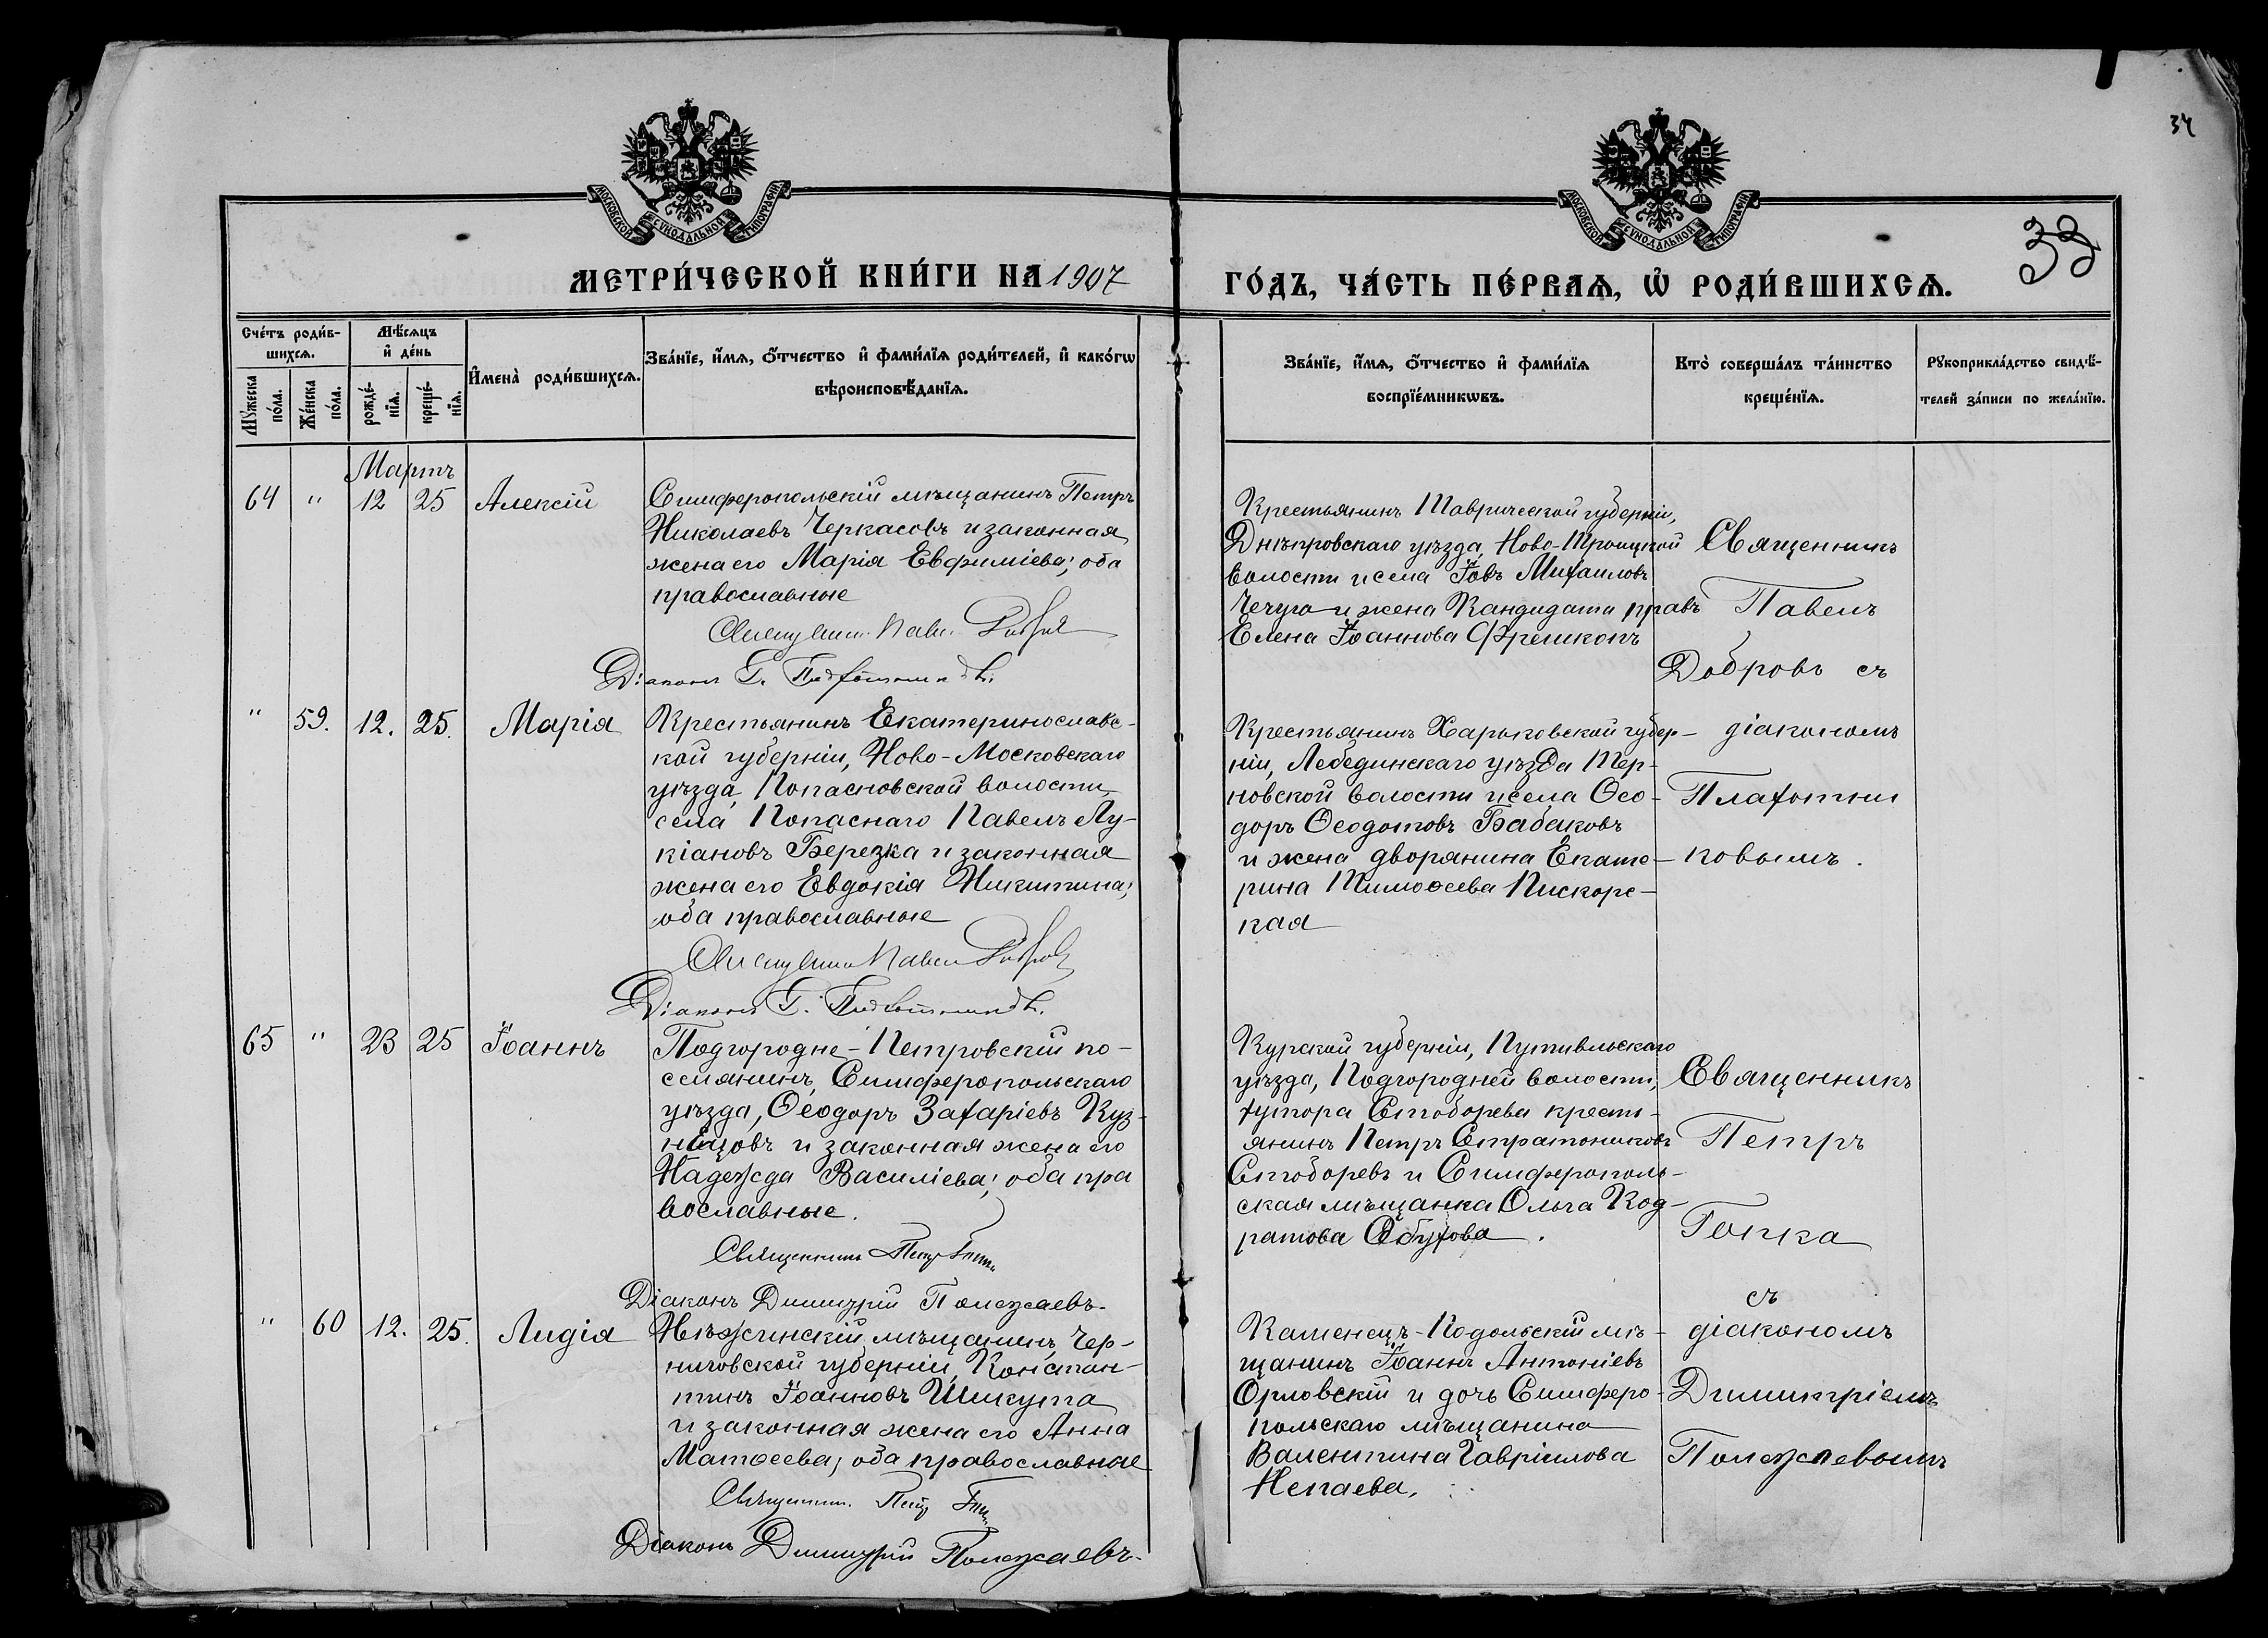 34
МОСКОВСКОЙ СѴНОДАЛЬНОЙ ТИПОГРАФІИ
МОСКОВСКОЙ СѴНОДАЛЬНОЙ ТИПОГРАФІИ
33
МЕТРИ́ЧЕСКОЙ КНИ́ГИ НА 1907
ГО́ДЪ, ЧА́СТЬ ПЕ́РВАѦ, Ѡ РОДИ́ВШИХСѦ.
Сче́тъ роди́в-
шихсѧ.
Мꙋ́жеска
по́ла.
Же́нска
по́ла.
Мѣ́сѧцъ
и де́нь
рожде́-
нїѧ.
креще́-
нїѧ.
Имена̀ роди́вшихсѧ.
Зва́нїе, и́мѧ, о́тчество и фами́лїѧ роди́телей, и како́гѡ
вѣроисповѣ́данїѧ.
Зва́нїе, и́мѧ, о́тчество и фами́лїѧ
воспрїе́мникѡвъ.
Кто̀ соверша́лъ та́инство
креще́нїѧ.
Рꙋкоприкла́дство свидѣ́-
телей за́писи по жела́нїю.
Мартъ
64 " 12 25 Алексій
Симферопольскій мѣщанинъ Петръ
Николаевъ Черкасовъ и законная
жена его Марія Евфиміева; оба
православные
Діаконъ Г.
Крестьянинъ Таврической губерніи,
Днѣпровскаго уѣзда, Ново-Троицкой
волости и села Іовъ Михаиловъ
Чечуго и жена Кандидата правъ
Елена Іоаннова Френкопъ
Священникъ
Павелъ
Добровъ съ
діакономъ
Плахотни
ковымъ.
" 59. 12. 25. Марія
Крестьянинъ Екатеринославс-
кой губерніи, Ново-Московскаго
уѣзда, Попасновской волости,
села Попаснаго Павелъ Лу-
кіановъ Березка и законная
жена его Евдокія Никитина;
оба православные
Діаконъ Г.
Крестьянинъ Харьковской губер-
ніи, Лебединскаго уѣзда Тер-
новской волости и села Ѳео-
доръ Ѳеодотовъ Бабаковъ
и жена дворянина Екате-
рина Тимоѳеева Пискорс-
кая
65 " 23 25 Іоаннъ
Подгородне-Петровскій по-
селянинъ, Симферопольскаго
уѣзда, Ѳеодоръ Захаріевъ Куз-
нецовъ и законная жена его
Надежда Василіева; оба пра
вославные.
Священникъ Петръ
Діаконъ Димитрій Полежаевъ.
Курской губерніи, Путивльскаго
уѣзда, Подгородней волости,
хутора Стоборева крестъ-
янинъ Петръ Стратониковъ
Стоборевъ и Симферополь-
ская мѣщанка Ольга Код-
ратова Обухова.
Священникъ
Петръ
Гопка
съ
діакономъ
Димитріемъ
Полежаевымъ
" 60 12. 25. Лидія
Нѣжинскій мѣщанинъ, Чер-
ниговской губерніи, Констан-
тинъ Іоанновъ Шикута
и законная жена его Анна
Матѳеева; оба православные
Діаконъ Димитрій Полежаевъ.
Каменецъ-Подольскій мѣ-
щанинъ Іоаннъ Антоніевъ
Орловскій и дочь Симферо-
польскаго мѣщанина
Валентина Гавріилова
Непаева.